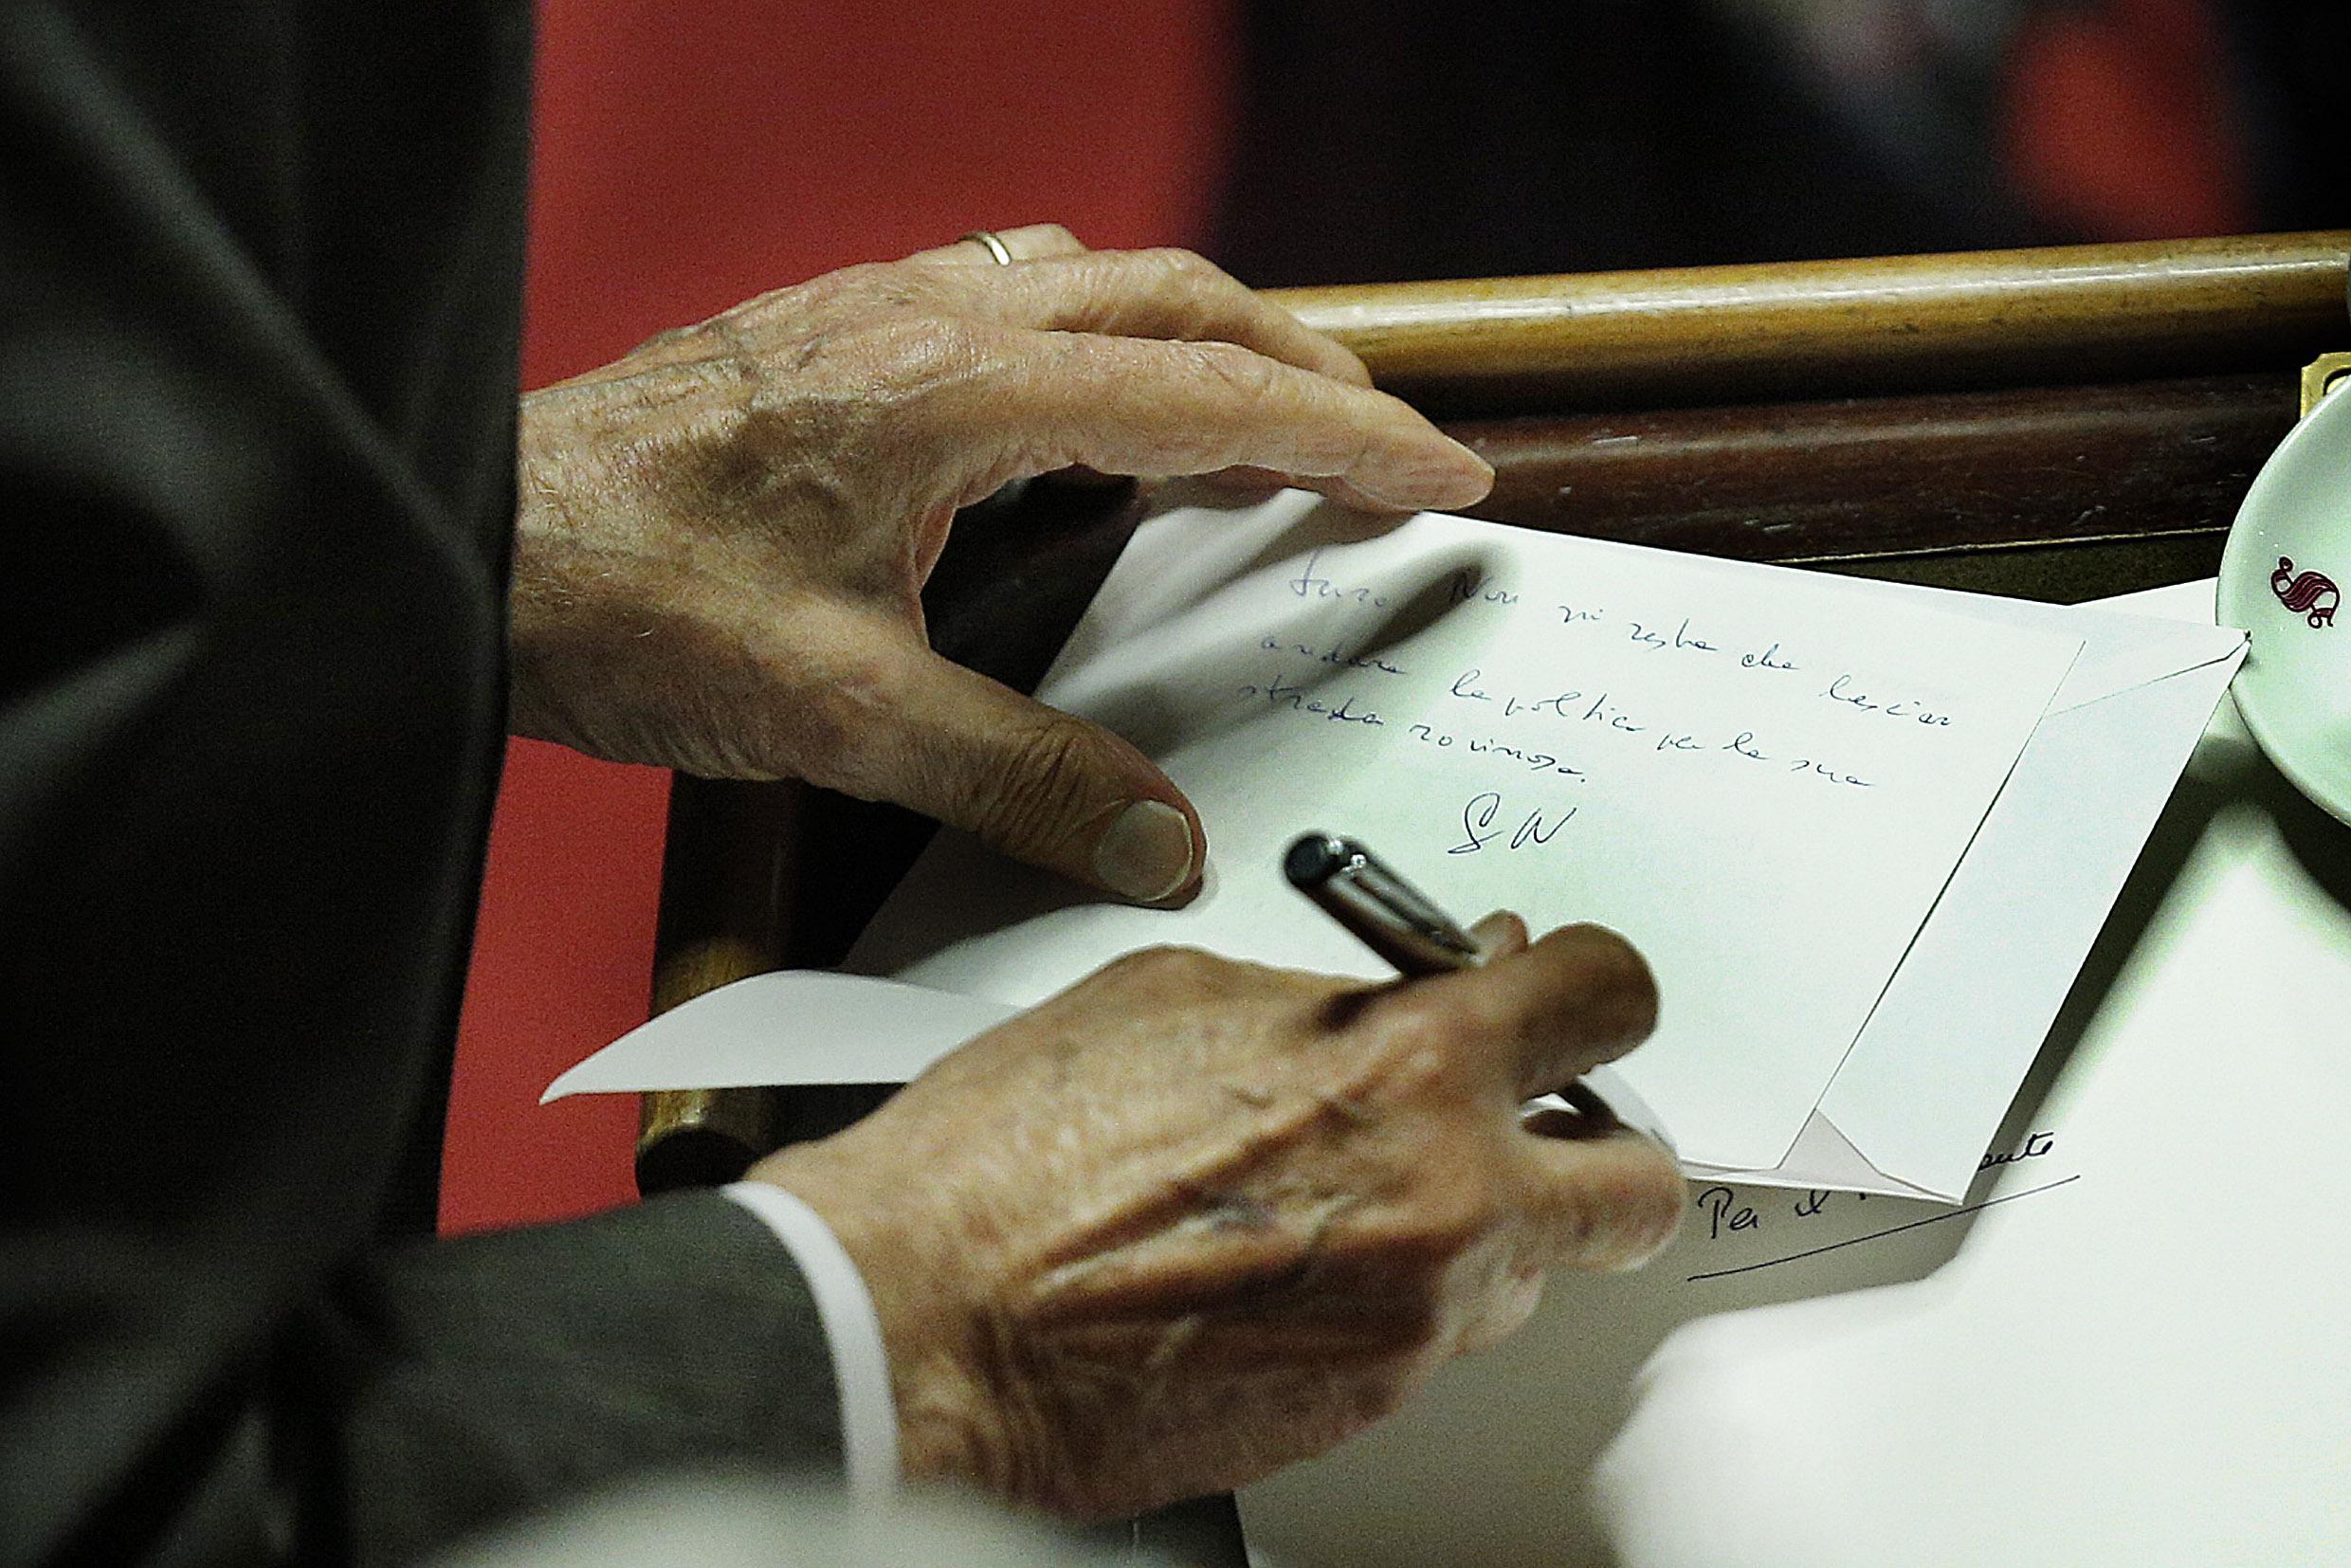 Non mi resta che lasciar
andare la politica per la sua
strada rovinosa.
S N
Per il